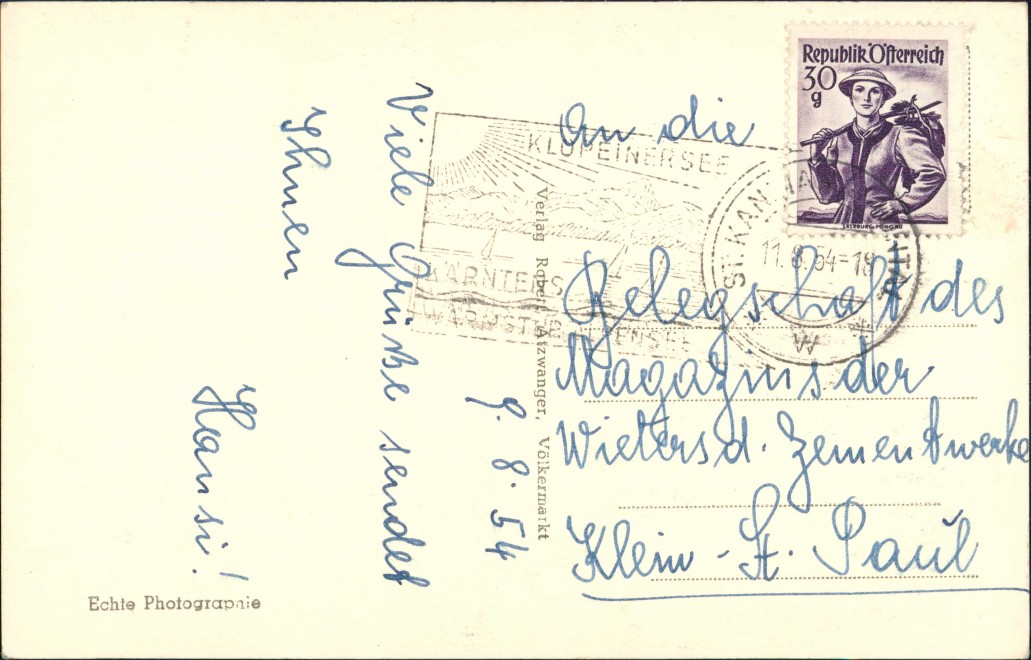 9. 8. 54
Viele Grüße sendet
Ihnen
Hansi!
Echte Photographie
Verlag Robert Atzwanger, Völkermarkt
KLOPEINERSEE
KÄRNTENS
WÄRMSTER BADENSEE
Republik Österreich
30
g
SALZBURG-PONGAU
ST. KANZIAN
11.8.54-18
An die
Belegschaft des
Magazins der
Wietersd. Zementwerke
Klein-St. Paul